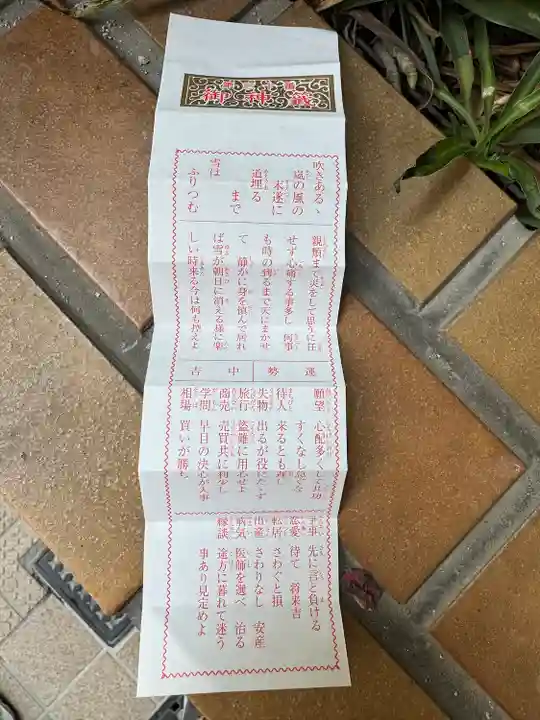 御神籤
吹きあるゝ
嵐の風の
末遂に
道埋る
まで
雪は
ふりつむ
親類まで災をして思うに任
せず心痛する事多し 何事
も時の到るまで天にまかせ
て 静かに身を慎んで居れ
ば雪が朝日に消える様に楽
しい時来る今は何も控えよ
運勢 中吉
願望 心配多くして其功
すくなし急ぐな
待人 来るとも遅し
失物 出るが役にたゝず
旅行 盗難に用心せよ
商売 売買共に利少し
学問 早目の決心が大事
相場 買いが勝ち
争事 先に言と負ける
恋愛 待て 将来吉
転居 さわぐと損
出産 さわりなし 安産
病気 医師を選べ 治る
縁談 途方に暮れて迷う
事あり見定めよ